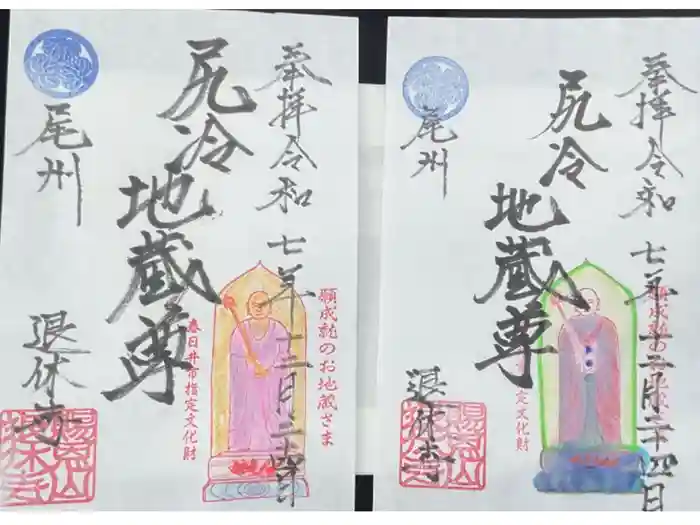 奉拝令和七年十二月二十四日
願成就のお地蔵さま
尻冷地蔵尊
春日井市指定文化財
尾州
退休寺
奉拝令和七年十二月二十四日
願成就のお地蔵さま
尻冷地蔵尊
定文化財
尾州
退休寺